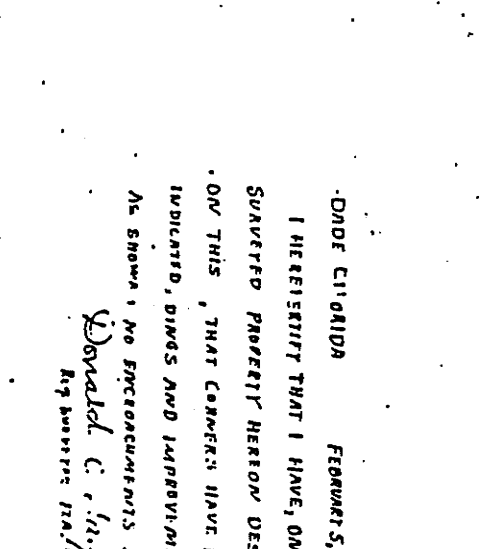 DADE CI ORIDA FEBRUARY 5,
I HERE ERTIFY THAT I HAVE, ON
SURVEYED PROPERTY HEREON DES
ON THIS , THAT CORNERS HAVE
INDICATED, DINGS AND IMPROVEM
AS SHOWN, NO ENCROACHMENTS
Donald C.
Reg